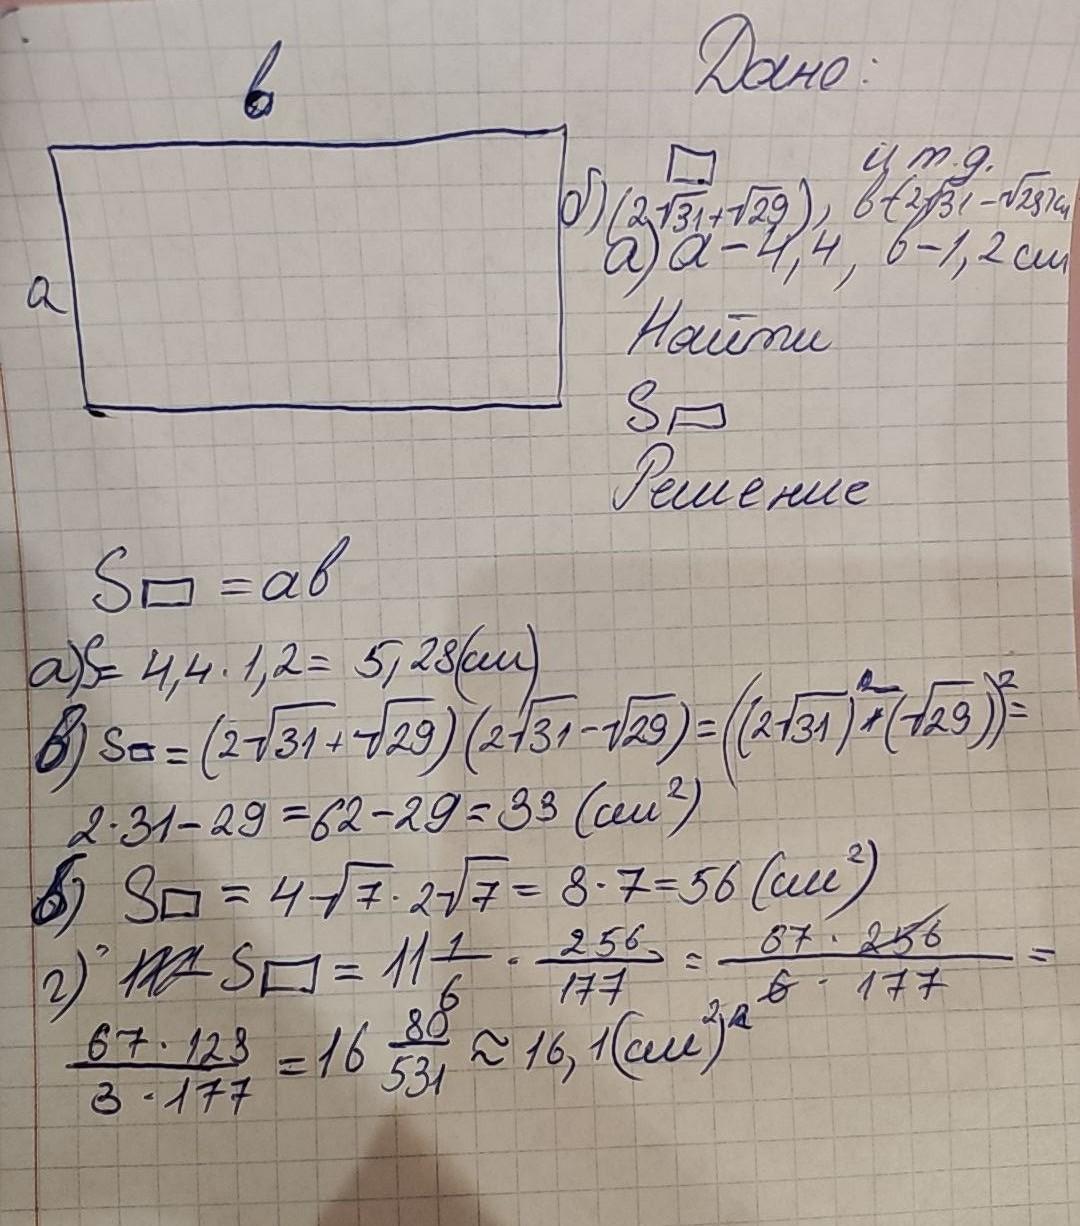 в
Дано:
▭ и т.д.
б) (2√31+√29), в-(2√31-√29)см
а) а-4,4, в-1,2 см
а
Найти
S▭
Решение
S▭ = ав
а) S= 4,4 · 1,2 = 5,28(см)
в) S▭ = (2√31+√29)(2√31-√29)=((2√31)²-(√29))²=
2·31-29=62-29=33 (см²)
б) S▭ = 4√7·2√7 = 8·7=56 (см²)
г) S▭ = 11 1/6 · 256/177 = 67·256/6·177 =
67·128/3·177 = 16 80/531 ≈ 16,1(см²)